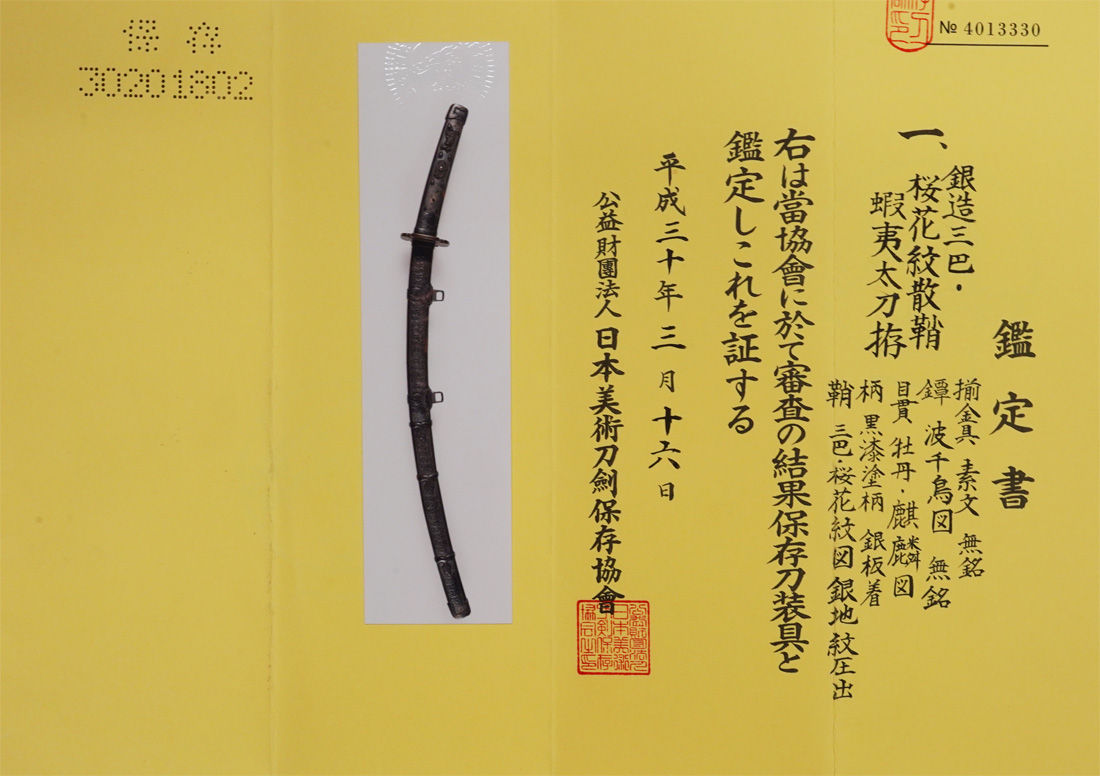 № 4013330
鑑定書
一、
銀造三巴・
桜花紋散鞘
蝦夷太刀拵
揃金具 素文 無銘
鐔 波千鳥図 無銘
目貫 牡丹・麒麟図
柄 黒漆塗柄 銀板着
鞘 三巴・桜花紋図 銀地紋圧出
右は當協會に於て審査の結果保存刀装具と
鑑定しこれを証する
平成三十年三月十六日
公益財團法人 日本美術刀劍保存協會
保存
30201802